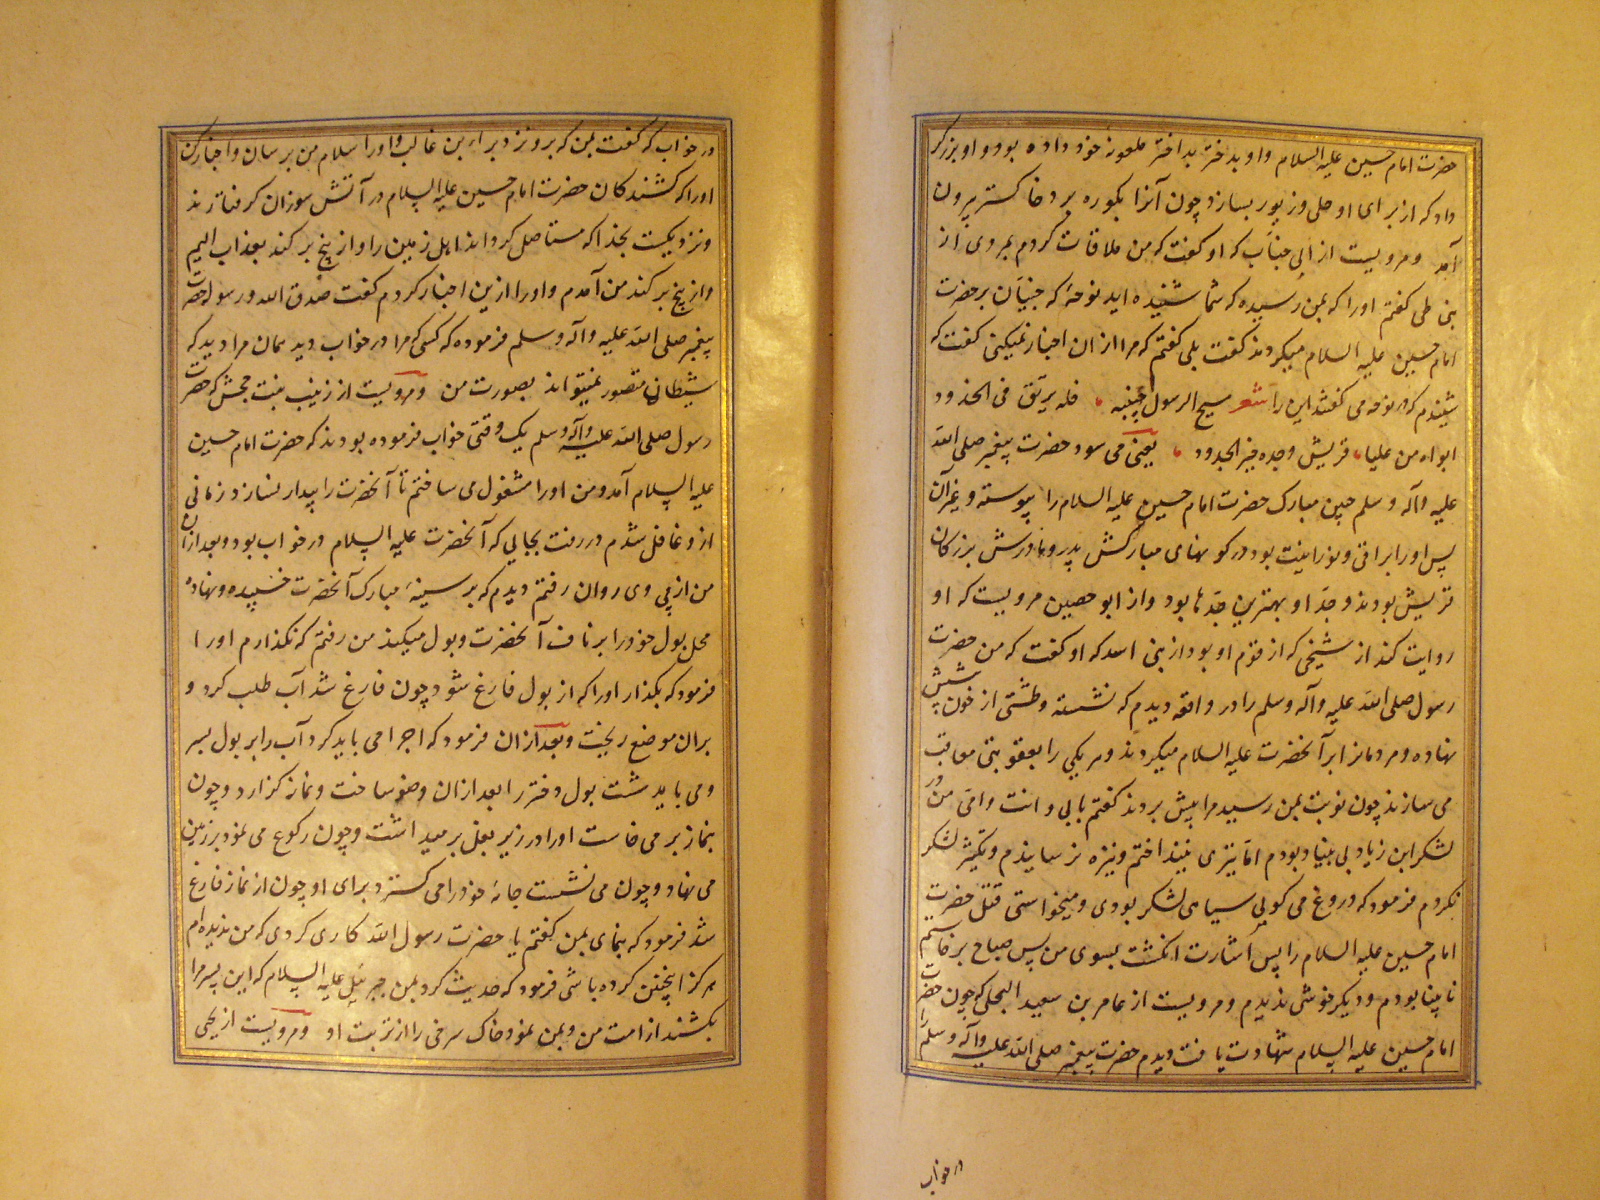 حضرت امام حسین علیه السلام و او بدختر بد اختر ملعونهٔ خود داده بود و او بزرگر
داد که از برای او حلی و زیور بسازد چون آنرا بکوره برد خاکستر بیرون
آمد و مرویست از ابی جناب که او گفت که من ملاقات کردم بمردی از
بنی طی گفتم او را که بمن رسیده که شما شنیده اید نوحهٔ که جنیان بر حضرت
امام حسین علیه السلام میکردند گفت بلی گفتم که مرا از ان اخبار نمیکنی گفت که
شنیدم که در نوحه می گفتند این را شعر مسح الرسول جبینه فله بریق فی الخدود
ابواه من علیاء قریش وجده خیر الجدود یعنی می سود حضرت پیغمبر صلی الله
علیه و آله و سلم جبین مبارک حضرت امام حسین علیه السلام را پیوسته و غیر آن
پس او را براقی و نورانیت بود در کونهای مبارکش پدر و مادرش بزرگان
قریش بودند و جد او بهترین جدها بود و از ابو حصین مرویست که او
روایت کند از شیخی که از قوم او بود از بنی اسد که او گفت که من حضرت
رسول صلی الله علیه و آله و سلم را در واقعه دیدم که نشسته و طشتی از خون پیشش
نهاده و مردمانرا بر آنحضرت علیه السلام میکردند و هر یکی را بعقوبتی معاقب
می سازند چون نوبت بمن رسید مرا پیش بردند گفتم بابی و انت و امی من در
لشکر ابن زیاد بی بنیاد بودم اما تیری نینداختم و نیزه نرسانیدم و تکثیر لشکر
نکردم فرمود که دروغ می گویی سیاهی لشکر بودی و میخواستی قتل حضرت
امام حسین علیه السلام را پس اشارت انگشت بسوی من پس صباح برخاستم
نابینا بودم و دیگر خوشی ندیدم و مرویست از عامر بن سعید البجلی که چون حضرت
امام حسین علیه السلام شهادت یافت دیدم حضرت پیغمبر صلی الله علیه و آله و سلم را
در خواب
در خواب که گفت بمن که برو نزد براء بن غالب و او را سلام من برسان و اخبار کن
او را که کشندگان حضرت امام حسین علیه السلام در آتش سوزان گرفتارند
و نزدیکست بخدا که مستاصل گرداند اهل زمین را و از بیخ برکند بعذاب الیم
و از بیخ برکند من آمدم و او را ازین اخبار کردم گفت صدق الله و رسوله حضرت
پیغمبر صلی الله علیه و آله و سلم فرموده که کسی که مرا در خواب دید همان مرا دید که
شیطان متصور نمیتواند بصورت من و مرویست از زینب بنت جحش که حضرت
رسول صلی الله علیه و آله و سلم یک وقتی خواب فرموده بودند که حضرت امام حسین
علیه السلام آمد و من او را مشغول می ساختم تا آنحضرت را بیدار نسازد زمانی
ازو غافل شدم در رفت بجایی که آنحضرت علیه السلام در خواب بود و بعد از ان
من از پی وی روان رفتم دیدم که بر سینهٔ مبارک آنحضرت خسپیده و نهاده
محل بول خود را بر ناف آنحضرت و بول میکند من رفتم که نگذارم او را
فرمود که بگذار او را که از بول فارغ شود چون فارغ شد آب طلب کرد و
بران موضع ریخت و بعد از ان فرمود که اجرا می باید کرد آب را بر بول پسر
و می باید شست بول دختر را بعد از ان وضو ساخت و نماز گزارد و چون
بنماز بر می خاست او را در زیر بغل بر میداشت و چون رکوع می نمود بر زمین
می نهاد و چون می نشست جای خود را می گسترد برای او چون از نماز فارغ
شد فرمود که بنمای بمن گفتم یا حضرت رسول الله کاری کردی که من ندیده ام
هرگز اینچنین کرده باشی فرمود که حدیث کرد بمن جبرئیل علیه السلام که این پسر مرا
بکشند از امت من و بمن نمود خاک سرخی را از تربت او و مرویست از یحیی